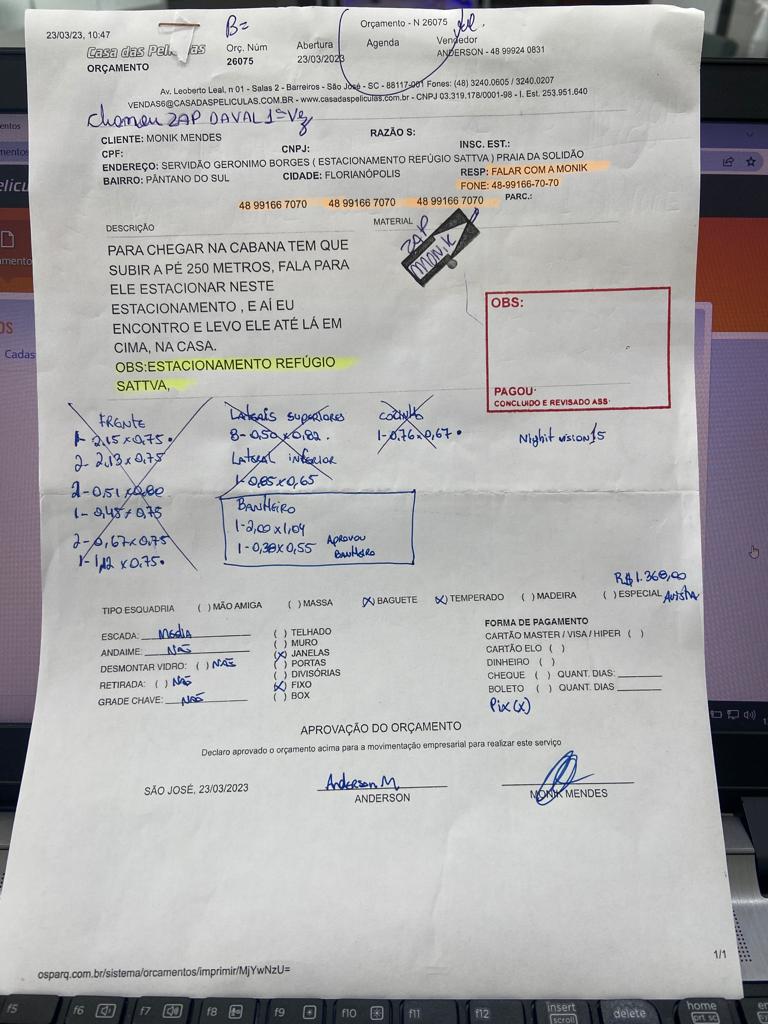 23/03/23, 10:47
B=
Orçamento - N 26075
Casa das Películas
ORÇAMENTO
Orç. Núm
26075
Abertura
23/03/2023
Agenda
Vendedor
ANDERSON - 48 99924 0831
Av. Leoberto Leal, n 01 - Salas 2 - Barreiros - São José - SC - 88117-001 Fones: (48) 3240.0605 / 3240.0207
VENDAS6@CASADASPELICULAS.COM.BR - www.casadaspeliculas.com.br - CNPJ 03.319.178/0001-98 - I. Est. 253.951.640
chamou ZAP DAVAL 1ª Vez
CLIENTE: MONIK MENDES
RAZÃO S:
CPF:
CNPJ:
INSC. EST.:
ENDEREÇO: SERVIDÃO GERONIMO BORGES ( ESTACIONAMENTO REFÚGIO SATTVA ) PRAIA DA SOLIDÃO
BAIRRO: PÂNTANO DO SUL
CIDADE: FLORIANÓPOLIS
RESP: FALAR COM A MONIK
FONE: 48-99166-70-70
48 99166 7070 48 99166 7070 48 99166 7070
PARC.:
DESCRIÇÃO
MATERIAL
ZAP
MONIK
PARA CHEGAR NA CABANA TEM QUE
SUBIR A PÉ 250 METROS, FALA PARA
ELE ESTACIONAR NESTE
ESTACIONAMENTO , E AÍ EU
ENCONTRO E LEVO ELE ATÉ LÁ EM
CIMA, NA CASA.
OBS:ESTACIONAMENTO REFÚGIO
SATTVA,
OBS:
PAGOU:
CONCLUIDO E REVISADO ASS:
FRENTE
1-2,15x0,75
2-2,13x0,75
2-0,51x0,80
1-0,45x0,75
2-0,67x0,75
1-1,12x0,75
LATERAIS SUPERIORES
8-0,50x0,82
LATERAL INFERIOR
1-0,85x0,65
COZINHA
1-0,76x0,67
Nighit vision 15
BANHEIRO
1-2,00x1,04
1-0,38x0,55
APROVOU
BANHEIRO
R$1.368,00
Avista
TIPO ESQUADRIA ( ) MÃO AMIGA ( ) MASSA (X) BAGUETE (X) TEMPERADO ( ) MADEIRA ( ) ESPECIAL
ESCADA: Media
ANDAIME: NÃO
DESMONTAR VIDRO: ( ) NÃO
RETIRADA: ( ) NÃO
GRADE CHAVE: NÃO
( ) TELHADO
( ) MURO
(X) JANELAS
( ) PORTAS
( ) DIVISÓRIAS
(X) FIXO
( ) BOX
FORMA DE PAGAMENTO
CARTÃO MASTER / VISA / HIPER ( )
CARTÃO ELO ( )
DINHEIRO ( )
CHEQUE ( ) QUANT. DIAS:
BOLETO ( ) QUANT. DIAS
Pix (X)
APROVAÇÃO DO ORÇAMENTO
Declaro aprovado o orçamento acima para a movimentação empresarial para realizar este serviço
SÃO JOSÉ, 23/03/2023
Anderson M
ANDERSON
MONIK MENDES
osparq.com.br/sistema/orcamentos/imprimir/MjYwNzU=
1/1
f5 f6 f7 f8 f9 f10 f11 f12 insert delete home
scroll prt sc